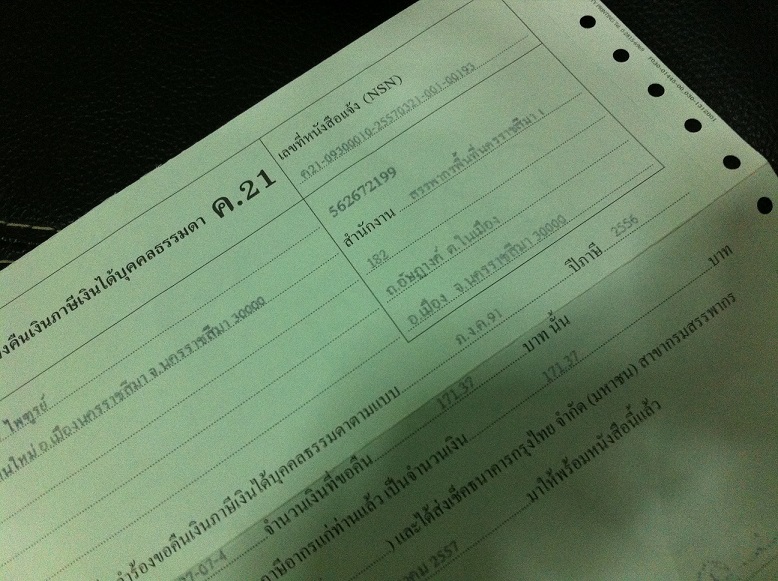 เลขที่หนังสือแจ้ง (NSN)
ค21-09300010-25570321-001-00193
งคืนเงินภาษีเงินได้บุคคลธรรมดา ค.21
562672199
สำนักงาน สรรพากรพื้นที่นครราชสีมา 1
182
ถ.อัษฎางค์ ต.ในเมือง
อ.เมือง จ.นครราชสีมา 30000
ไพฑูรย์
อ.เมืองนครราชสีมา จ.นครราชสีมา 30000
คำร้องขอคืนเงินภาษีเงินได้บุคคลธรรมดาตามแบบ ภ.ง.ด.91 ปีภาษี 2556
จำนวนเงินที่ขอคืน 171.37 บาท นั้น
ภาษีอากรแก่ท่านแล้ว เป็นจำนวนเงิน 171.37 บาท
) และได้ส่งเช็คธนาคารกรุงไทย จำกัด (มหาชน) สาขากรมสรรพากร
2557 มาให้พร้อมหนังสือนี้แล้ว